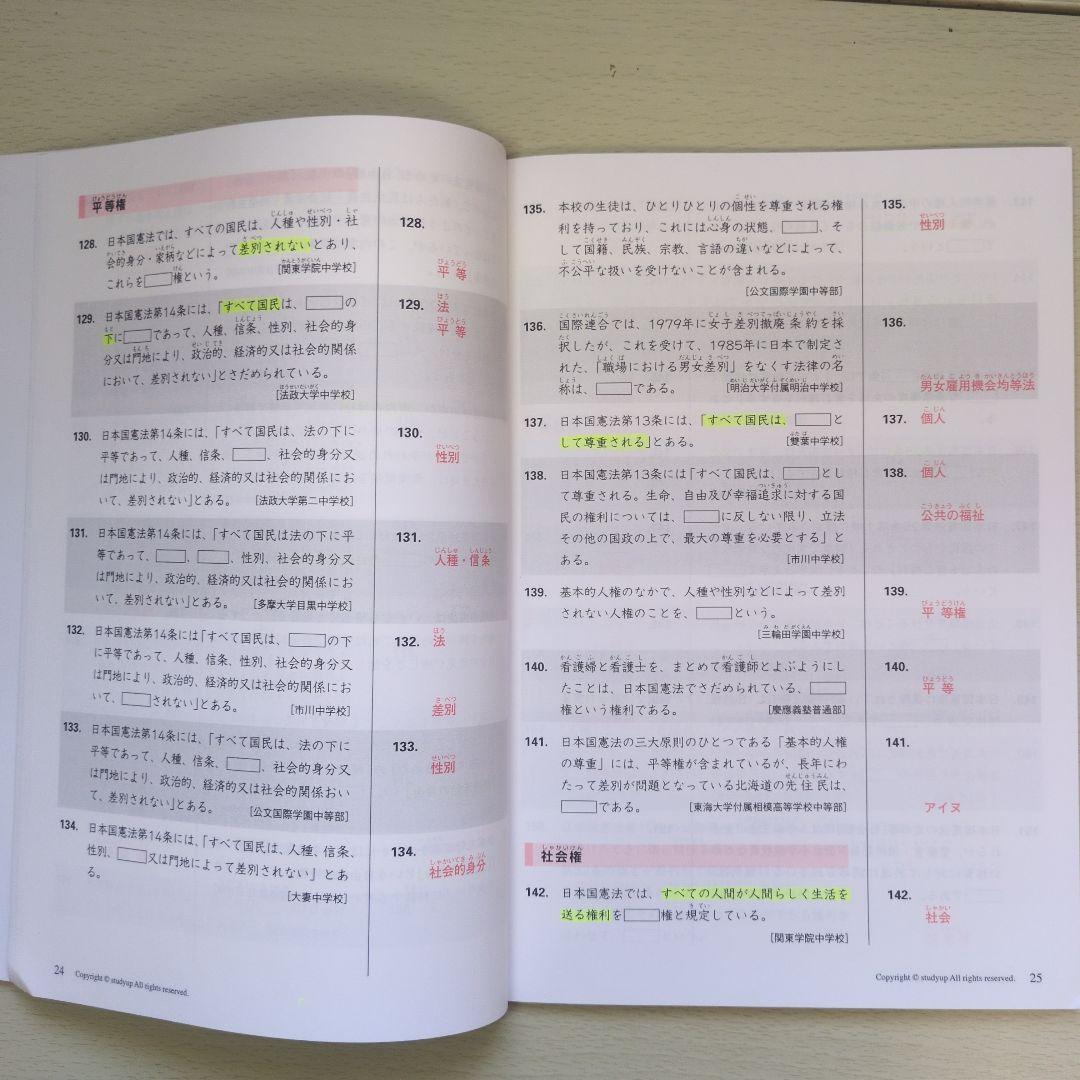 平等権
128. 日本国憲法では、すべての国民は、人種や性別・社
会的身分・家柄などによって差別されないとあり、
これらを権という。 [関東学院中学校]
128.
平等
129. 日本国憲法第14条には、「すべて国民は、の
下にであって、人種、信条、性別、社会的身
分又は門地により、政治的、経済的又は社会的関係
において、差別されない」とさだめられている。
[法政大学中学校]
129. 法
平等
130. 日本国憲法第14条には、「すべて国民は、法の下に
平等であって、人種、信条、、社会的身分又
は門地により、政治的、経済的又は社会的関係にお
いて、差別されない」とある。 [法政大学第二中学校]
130.
性別
131. 日本国憲法第14条には、「すべて国民は法の下に平
等であって、、、性別、社会的身分又
は門地により、政治的、経済的又は社会的関係にお
いて、差別されない」とある。 [多摩大学目黒中学校]
131.
人種・信条
132. 日本国憲法第14条には「すべて国民は、の下
に平等であって、人種、信条、性別、社会的身分又
は門地により、政治的、経済的又は社会的関係にお
いて、されない」とある。 [市川中学校]
132. 法
差別
133. 日本国憲法第14条には、「すべて国民は、法の下に
平等であって、人種、信条、、社会的身分又
は門地により、政治的、経済的又は社会的関係おい
て、差別されない」とある。 [公文国際学園中等部]
133.
性別
134. 日本国憲法第14条には、「すべて国民は、人種、信条、
性別、又は門地によって差別されない」とあ
る。
[大妻中学校]
134.
社会的身分
24 Copyright © studyup All rights reserved.
135. 本校の生徒は、ひとりひとりの個性を尊重される権
利を持っており、これには心身の状態、、そ
して国籍、民族、宗教、言語の違いなどによって、
不公平な扱いを受けないことが含まれる。
[公文国際学園中等部]
135.
性別
136. 国際連合では、1979年に女子差別撤廃条約を採
択したが、これを受けて、1985年に日本で制定さ
れた、「職場における男女差別」をなくす法律の名
称は、である。 [明治大学付属明治中学校]
136.
男女雇用機会均等法
137. 日本国憲法第13条には、「すべて国民は、と
して尊重される」とある。 [雙葉中学校]
137. 個人
138. 日本国憲法第13条には「すべて国民は、とし
て尊重される。生命、自由及び幸福追求に対する国
民の権利については、に反しない限り、立法
その他の国政の上で、最大の尊重を必要とする」と
ある。 [市川中学校]
138. 個人
公共の福祉
139. 基本的人権のなかで、人種や性別などによって差別
されない人権のことを、という。
[三輪田学園中学校]
139.
平等権
140. 看護婦と看護士を、まとめて看護師とよぶようにし
たことは、日本国憲法でさだめられている、
権という権利である。 [慶應義塾普通部]
140.
平等
141. 日本国憲法の三大原則のひとつである「基本的人権
の尊重」には、平等権が含まれているが、長年にわ
たって差別が問題となっている北海道の先住民は、
である。 [東海大学付属相模高等学校中等部]
141.
アイヌ
社会権
142. 日本国憲法では、すべての人間が人間らしく生活を
送る権利を権と規定している。
[関東学院中学校]
142.
社会
Copyright © studyup All rights reserved. 25